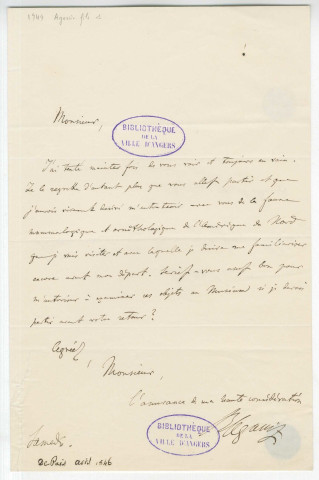 1944 Agassiz
Monsieur,
BIBLIOTHÈQUE
DE LA
VILLE D'ANGERS
J'ai tenté maintes fois de vous voir et toujours en vain.
Je le regrette d'autant plus que vous allez partir et que
j'aurais vivement désiré m'entretenir avec vous de la faune
mammologique et ornithologique de l'Amérique du Nord
que je vais visiter et avec laquelle je désire me familiariser
encore avant mon départ. Seriez-vous assez bon pour
m'autoriser à examiner ces objets au Muséum si je devais
partir avant votre retour?
Agréez,
Monsieur,
l'assurance de ma haute considération
BIBLIOTHÈQUE
DE LA
VILLE D'ANGERS
Agassiz
Samedi.
de Paris août 1846